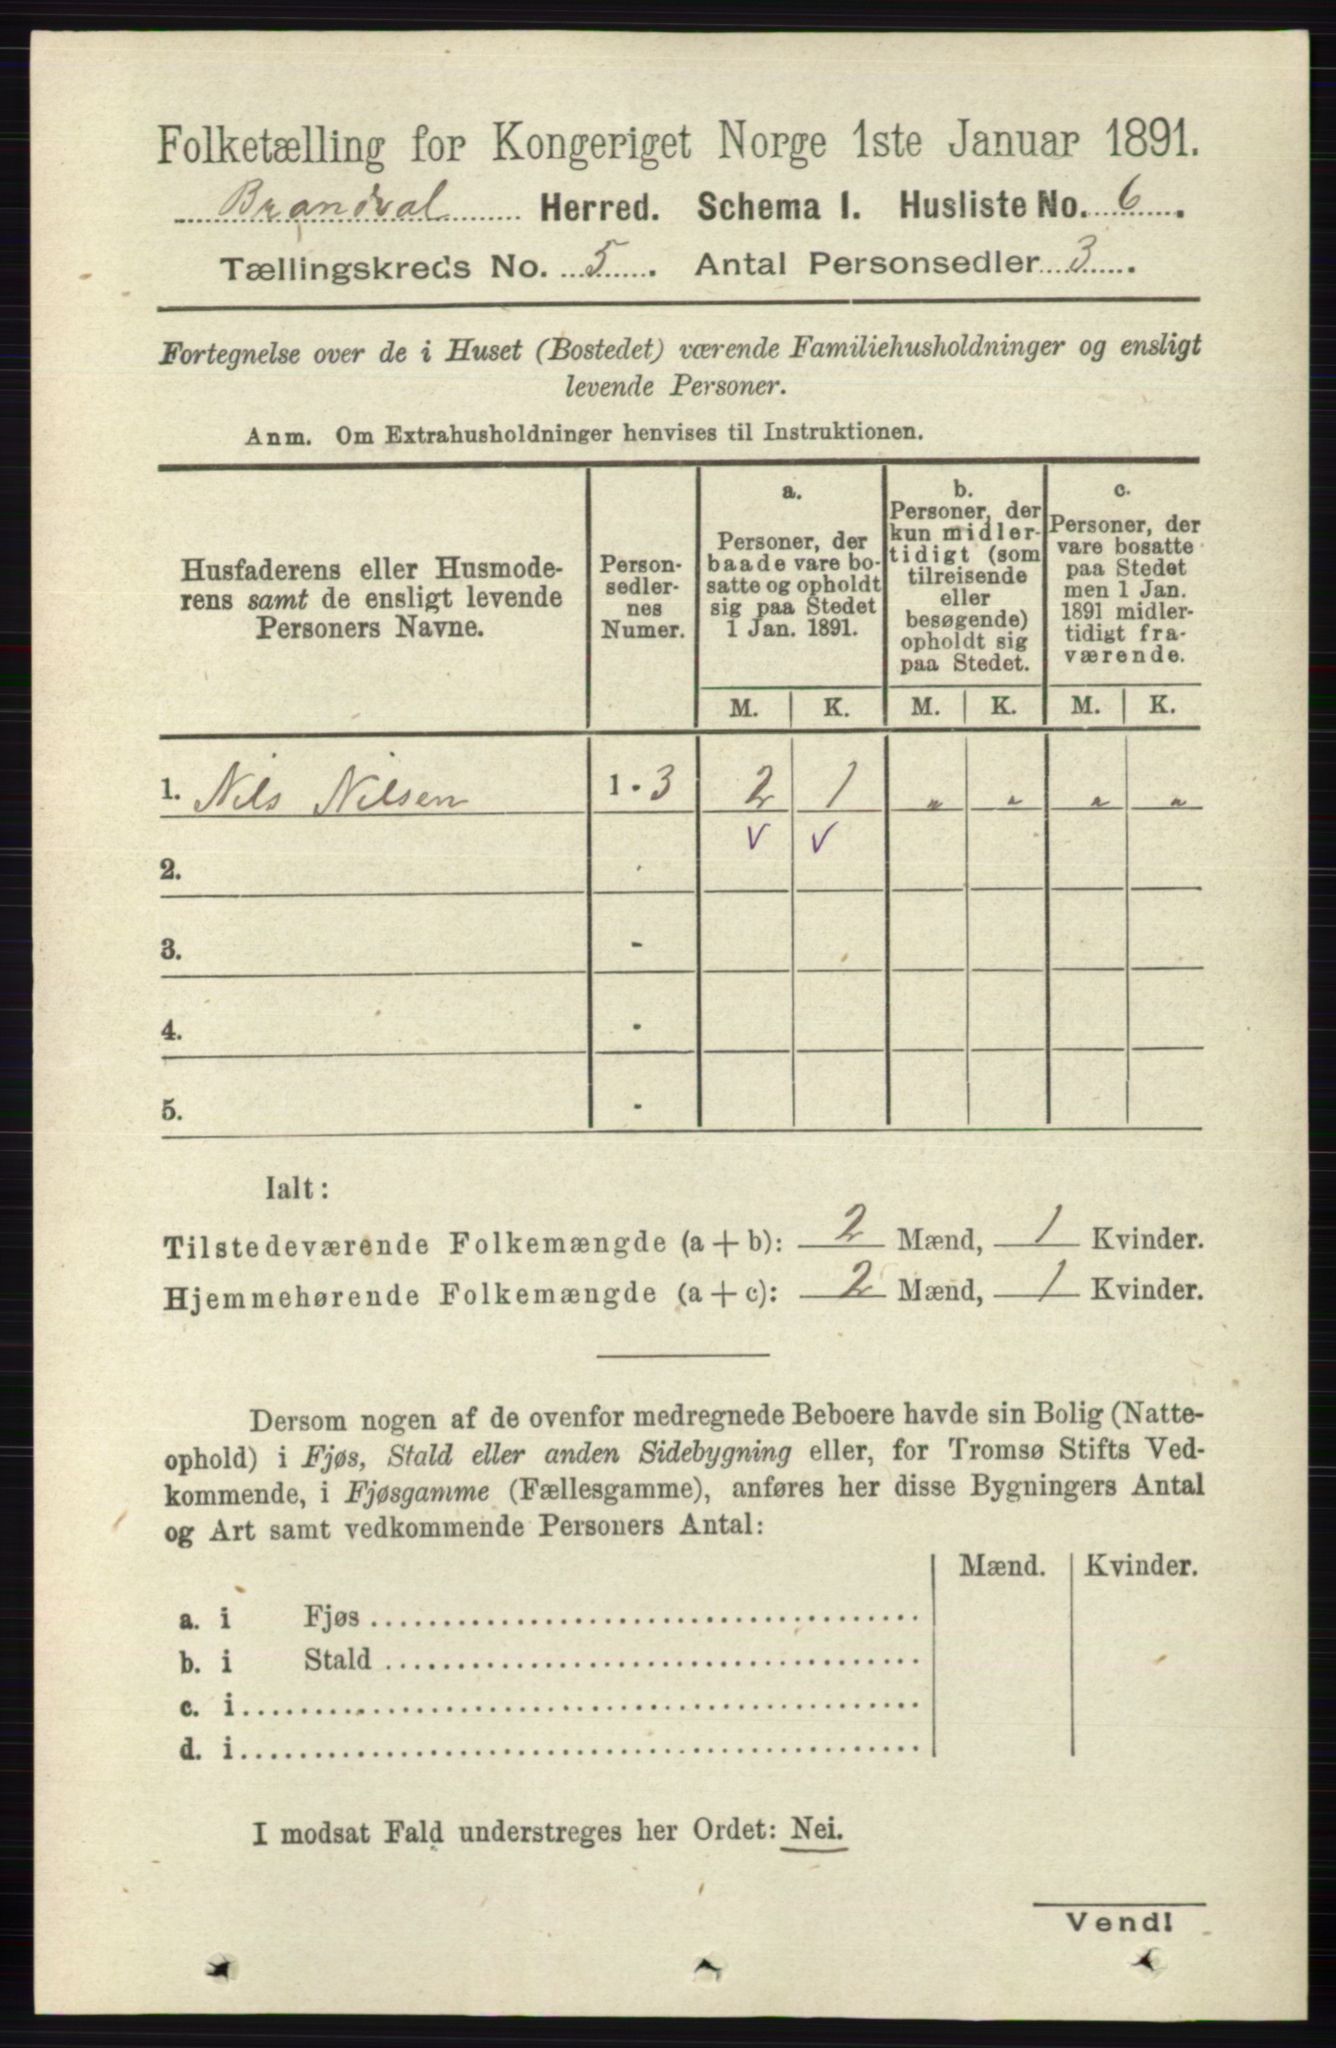 Folketælling for Kongeriget Norge 1ste Januar 1891.
Brandval Herred. Schema I. Husliste No. 6.
Tællingskreds No. 5. Antal Personsedler 3.
Fortegnelse over de i Huset (Bostedet) værende Familiehusholdninger og ensligt
levende Personer.
Anm. Om Extrahusholdninger henvises til Instruktionen.
Husfaderens eller Husmode-
rens samt de ensligt levende
Personers Navne.
Person-
sedler-
nes
Numer.
a.
Personer, der
baade vare bo-
satte og opholdt
sig paa Stedet
1 Jan. 1891.
b.
Personer, der
kun midler-
tidigt (som
tilreisende
eller
besøgende)
opholdt sig
paa Stedet.
c.
Personer, der
vare bosatte
paa Stedet
men 1 Jan.
1891 midler-
tidigt fra-
værende.
M. K. M. K. M. K.
1. Nils Nilsen 1 - 3 2 1 " " " "
v v
2. -
3. -
4. -
5. -
Ialt:
Tilstedeværende Folkemængde (a + b): 2 Mænd, 1 Kvinder.
Hjemmehørende Folkemængde (a + c): 2 Mænd, 1 Kvinder.
Dersom nogen af de ovenfor medregnede Beboere havde sin Bolig (Natte-
ophold) i Fjøs, Stald eller anden Sidebygning eller, for Tromsø Stifts Ved-
kommende, i Fjøsgamme (Fællesgamme), anføres her disse Bygningers Antal
og Art samt vedkommende Personers Antal:
Mænd. Kvinder.
a. i Fjøs
b. i Stald
c. i
d. i
I modsat Fald understreges her Ordet: Nei.
Vend!